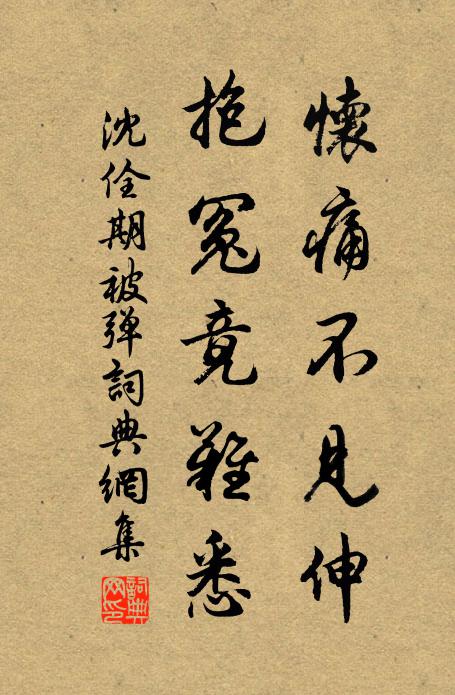 懷痛不見伸
抱冤竟難悉
沈佺期被弹詞典網集
詞典
网印